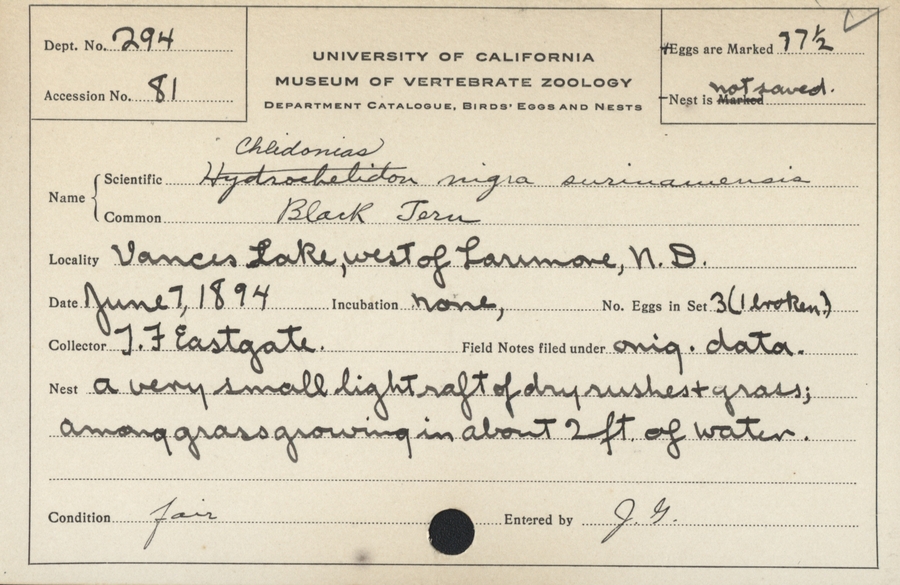 Dept. No. 294
Accession No. 81
UNIVERSITY OF CALIFORNIA
MUSEUM OF VERTEBRATE ZOOLOGY
DEPARTMENT CATALOGUE, BIRDS' EGGS AND NESTS
Eggs are Marked 77½
not saved.
Nest is Marked
Chlidonias
Name
Scientific Hydrochelidon nigra surinamensis
Common Black Tern
Locality Vances Lake, west of Larimore, N. D.
Date June 7, 1894 Incubation none, No. Eggs in Set 3 (1 broken.)
Collector T. F Eastgate. Field Notes filed under orig. data.
Nest a very small light raft of dry rushes + grass;
among grass growing in about 2 ft. of water.
Condition fair Entered by J. G.